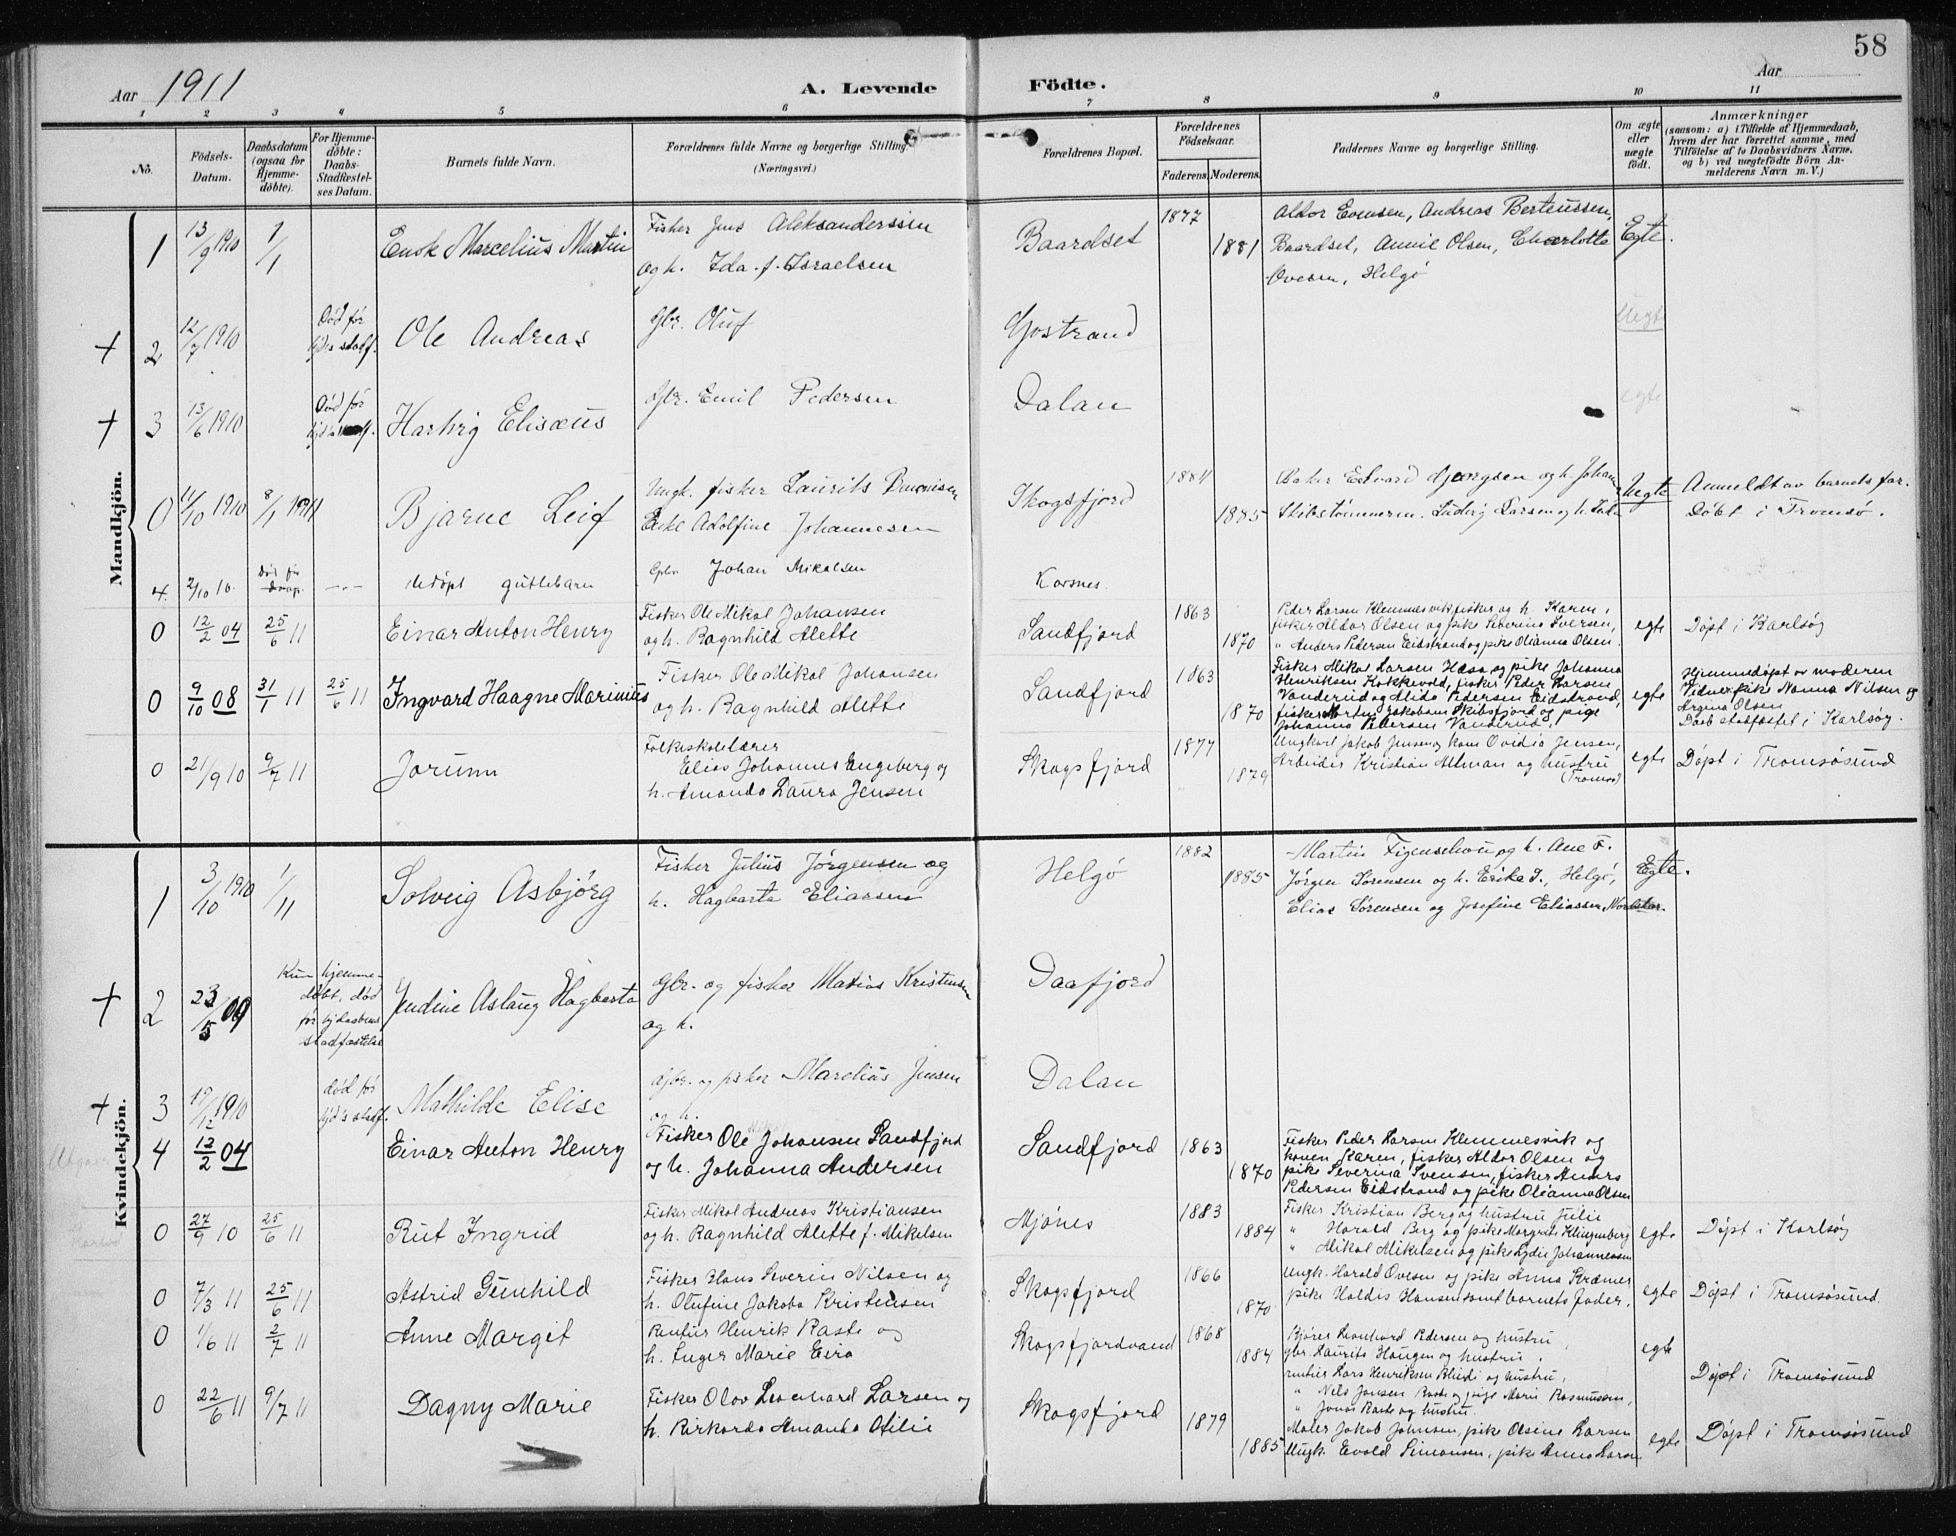 58
Aar 1911
A. Levende Födte.
Aar
1 2 3 4 5 6 7 8 9 10 11
No.
Födsels-Datum.
Daabsdatum (ogsaa for Hjemme-döbte).
For Hjemme-döbte: Daabs-Stadfæstel-ses Datum.
Barnets fulde Navn.
Forældrenes fulde Navne og borgerlige Stilling. (Næringsvei.)
Forældrenes Bopæl.
Forældrenes Födselsaar.
Faderens. Moderens.
Faddernes Navne og borgerlige Stilling.
Om ægte eller uægte födt.
Anmærkninger
(saasom: a) i Tilfælde af Hjemmedaab, hvem der har forrettet samme, med Tilföielse af to Daabsvidners Navne, og b) ved uægtefödte Börn Anmelderens Navn m. V.)
Mandkjön.
1 13/9 1910 1/1 Enok Marcelius Martin
Fisker Jens Aleksanderssen
og h. Ida f. Israelsen
Baardset 1877 1881
Aldor Evensen, Andreas Berteussen,
Baardset, Annie Olsen, Charlotte
Ovesen, Helgö
Egte.
+ 2 12/7 1910 Död för hjd's stadf. Ole Andreas
Gbr. Oluf
Gostrand
Uegte
+ 3 13/6 1910 Död för Elisæus
Gbr. Emil Pedersen
Dalan
egte
0 11/10 1910 8/1 1911 Bjarne Leif
Ungk. fisker Laurits
Enke Adolfine Johannesen
Skogsfjord 1884 1885
Baker Edvard og h. Johan
Skibstömmerm. Ludvig Larsen og h.
Uegte
Anmeldt av barnets far.
Döbt i Tromsö.
4. 2/10 10. Död för daap. -- udöpt guttebarn
Gbr. Johan Mikalsen
Korsnes.
0 12/2 04 25/6 11 Einar Anton Henry
Fisker Ole Mikal Johansen
og h. Ragnhild Alette
Sandfjord 1863 1870
Peder Larsen Klemmesvik fisker og h. Karen,
fisker Aldor Olsen og pike Severine Iversen,
" Anders Pedersen Eidstrand og pike Olianna Olsen
egte Döpt i Karlsöy
0 9/10 08 31/1 11 25/6 11 Ingvard Haagne Marinius
Fisker Ole Mikal Johansen
og h. Ragnhild Alette
Sandfjord 1863 1870
Fisker Mikal Larsen og pike Johanna
Henriksen Kokkevold, fisker Peder Larsen
Vanderud og Alida Pedersen Eidstrand,
fisker Jakobsen Skibsfjord og pige
Johanna Pedersen Vanderud.
egte
Hjemmedöpt av moderen
Vidner: pike Nanna Nilsen og
Olsen
Daab stadfæstet i Karlsöy.
0 21/9 10 9/7 11 Jorunn
Folkeskolelærer
Elias Johannes Engeberg og
h. Amanda Laura Jensen
Skogsfjord 1877 1879
Ungkarl Jakob Jensen, Ovidia Jensen,
Arbeider Kristian Altman og hustru
(Tromsö)
egte Döpt i Tromsösund
Kvindekjön.
1 3/10 1910 1/11 Solveig Asbjörg
Fisker Julius Jörgensen og
h. Hagbarta Eliassen
Helgö 1882 1885
Martin Figenschou og h. Ane F.
Jörgen Sörensen og h. Erika S., Helgö,
Elias Sörensen og Josefine Eliassen
Egte.
+ 2 23/5 09 Kun hjemme-döbt, död för hjdaabens stadfæstelse
Aslaug Hagbarta
Gbr. og fisker Matias Kristensen
og h.
Daafjord
+ 3 19/12 1910 död för hjd's stadf. Mathilde Elise
Gbr. og fisker Marelius Jensen
og h.
Dalan
4 12/2 04 Einar Anton Henry
Fisker Ole Johansen Sandfjord
og h. Johanna Andersen
Sandfjord 1863 1870
Fisker Peder Larsen Klemmesvik og
konen Karen, fisker Aldor Olsen og
pike Severina Svensen, fisker Anders
Pedersen Eidstrand og pike Olianna Olsen
0 27/9 10 25/6 11 Rut Ingrid
Fisker Mikal Andreas Kristiansen
og h. Ragnhild Alette f. Mikelsen
Mjönes 1883 1884
Fisker Kristian Berg og hustru Julie
" Harald Berg og pike Margrete Klingenberg
" Mikal Mikelsen og pike Lydie Johannessen
egte Döpt i Karlsöy
0 7/3 11 25/6 11 Astrid Gunhild
Fisker Hans Severin Nilsen og
h. Olufine Jakoba Kristensen
Skogsfjord 1866 1870
Ungk. Harald Ovesen og pike Anna Kræmer
pike Haldis Hansen samt barnets fader.
egte Döpt i Tromsösund.
0 1/6 11 2/7 11 Anne Margit
Rentier Henrik Raste og
h. Inger Marie Eira
Skogsfjordvand 1868 1884
Leonhard Pedersen og hustru,
gbr. Laurits Haugen og hustru,
rentier Lars Henriksen og hustru,
" Nils Jonsen Raste og pige Marie Rasmussen,
" Jonas Raste og hustru.
egte Döpt i Tromsösund
0 22/6 11 9/7 11 Dagny Marie
Fisker Olav Leonhard Larsen og
h. Rikarda Amanda Otilie
Skogsfjord 1879 1885
Maler Jakob Johnsen, pike Olsine Larsen
Ungk. Evald Simonsen, pike Anna Larsen
egte Döpt i Tromsösund